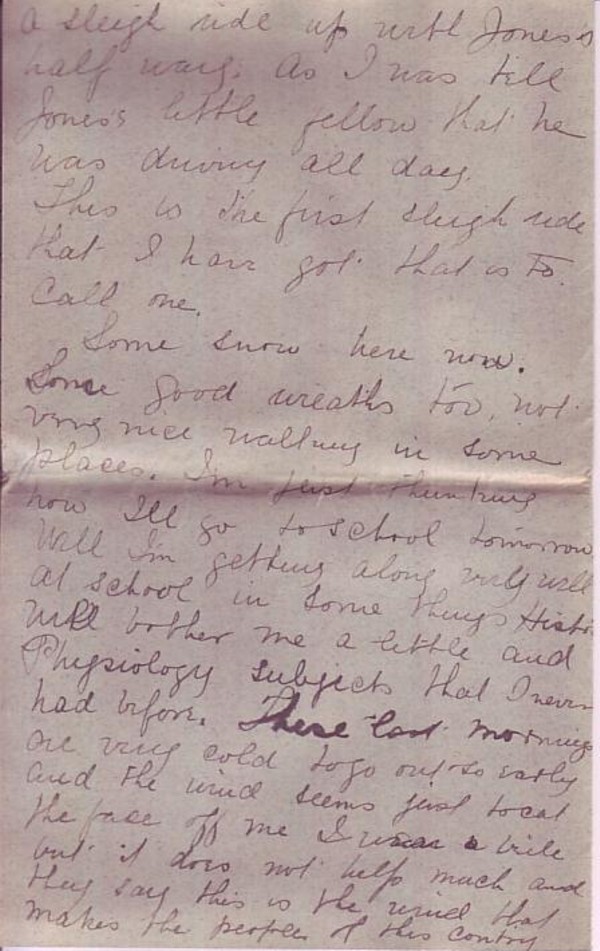 a sleigh ride up with Jones's
half way. As I was tell
Jones's little fellow that he
was driving all day.
This is the first sleigh ride
that I have got that is to
Call one.
Some snow here now.
Some good wreaths too, not
very nice walking in some
places. I'm just thinking
how Ill go to school tomorrow
Well I'm getting along very well
at school in some things Histo
will bother me a little and
Physiology subjects that I never
had before. These last mornings
are very cold to go out so early
and the wind seems just to cut
the face off me I wear a vile
but it does not help much and
they say this is the wind that
makes the people of this contry